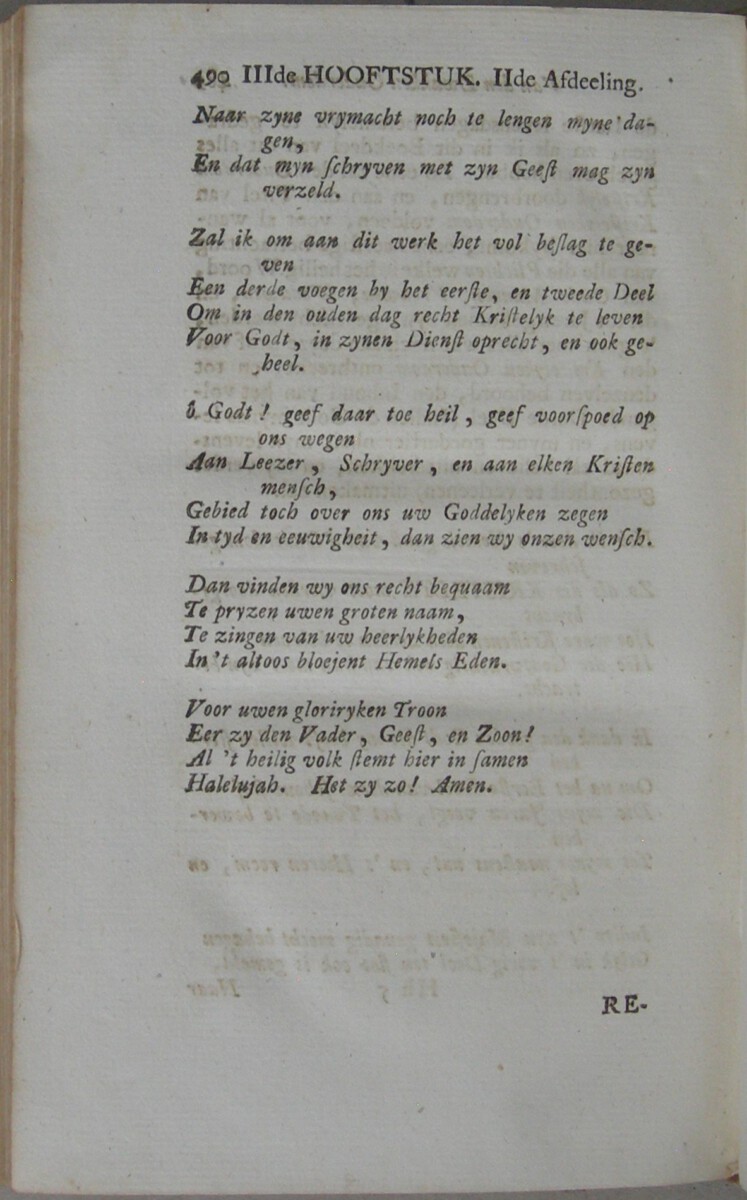 490 IIIde HOOFTSTUK. IIde Afdeeling.
Naar zyne vrymacht noch te lengen myne da-
gen,
En dat myn ſchryven met zyn Geeſt mag zyn
verzeld.
Zal ik om aan dit werk het vol beſlag te ge-
ven
Een derde voegen by het eerſte, en tweede Deel
Om in den ouden dag recht Kriſtelyk te leven
Voor Godt, in zynen Dienſt oprecht, en ook ge-
heel.
ô Godt! geef daar toe heil, geef voorſpoed op
ons wegen
Aan Leezer, Schryver, en aan elken Kriſten
menſch,
Gebied toch over ons uw Goddelyken zegen
In tyd en eeuwigheit, dan zien wy onzen wenſch.
Dan vinden wy ons recht bequaam
Te pryzen uwen groten naam,
Te zingen van uw heerlykheden
In't altoos bloejent Hemels Eden.
Voor uwen gloriryken Troon
Eer zy den Vader, Geeſt, en Zoon!
Al 't heilig volk ſtemt hier in ſamen
Halelujah. Het zy zo! Amen.
RE-